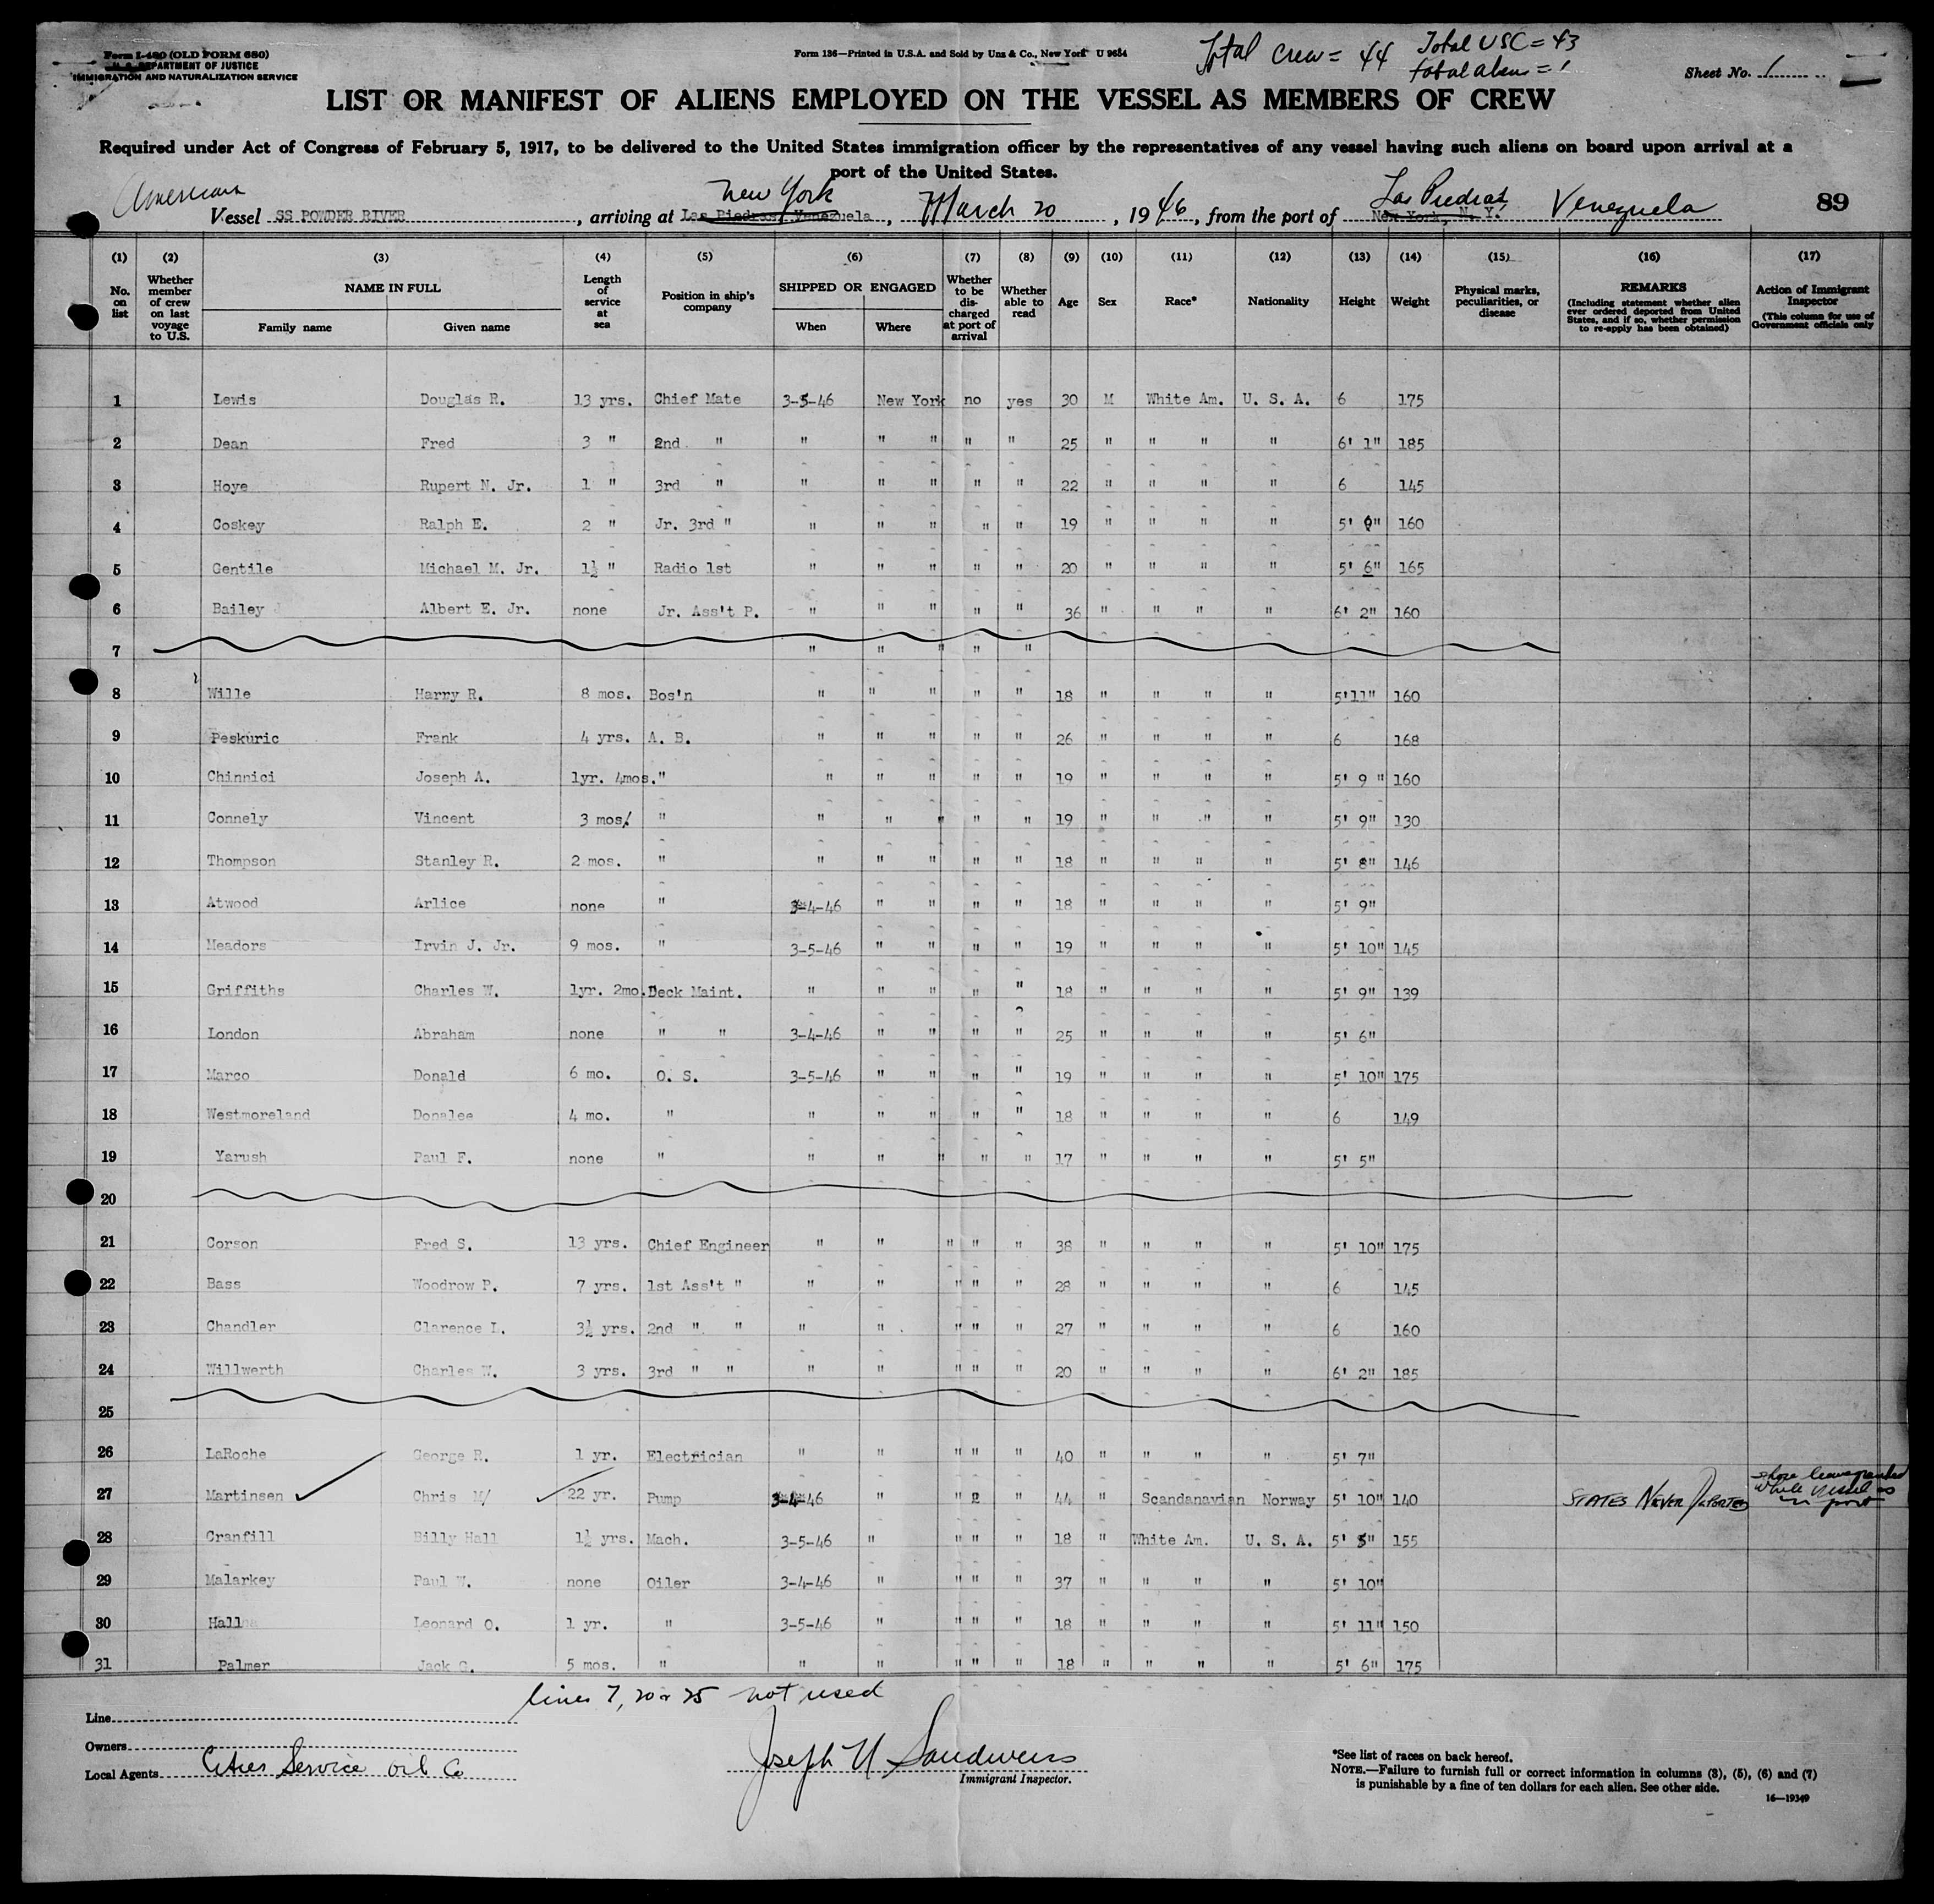 Form I-480 (OLD FORM 680)
U. S. DEPARTMENT OF JUSTICE
IMMIGRATION AND NATURALIZATION SERVICE
Form 136—Printed in U.S.A. and Sold by Unz & Co., New York U 9684
Total crew = 44 Total USC = 43
total aliens = 1
Sheet No. 1
LIST OR MANIFEST OF ALIENS EMPLOYED ON THE VESSEL AS MEMBERS OF CREW
Required under Act of Congress of February 5, 1917, to be delivered to the United States immigration officer by the representatives of any vessel having such aliens on board upon arrival at a
port of the United States.
American New York Las Piedras
Vessel SS POWDER RIVER, arriving at Las Piedras, Venezuela, March 20, 1946, from the port of New York, N. Y. Venezuela 89
(1) (2) (3) (4) (5) (6) (7) (8) (9) (10) (11) (12) (13) (14) (15) (16) (17)
No. on list Whether member of crew on last voyage to U.S. NAME IN FULL Family name Given name Length of service at sea Position in ship's company SHIPPED OR ENGAGED When Where Whether to be discharged at port of arrival Whether able to read Age Sex Race* Nationality Height Weight Physical marks, peculiarities, or disease REMARKS (Including statement whether alien ever ordered deported from United States, and if so, whether permission to re-apply has been obtained) Action of Immigrant Inspector (This column for use of Government officials only
1 Lewis Douglas R. 13 yrs. Chief Mate 3-5-46 New York no yes 30 M White Am. U. S. A. 6 175
2 Dean Fred 3 " 2nd " " " " " " 25 " " " " 6' 1" 185
3 Hoye Rupert N. Jr. 1 " 3rd " " " " " " 22 " " " " 6 145
4 Coskey Ralph E. 2 " Jr. 3rd " " " " " " 19 " " " " 5' " 160
5 Gentile Michael M. Jr. 1½ " Radio 1st " " " " " 20 " " " " 5' 6" 165
6 Bailey Albert E. Jr. none Jr. Ass't P. " " " " " 36 " " " " 6' 2" 160
7 " " " " "
8 Wille Harry R. 8 mos. Bos'n " " " " " 18 " " " " 5'11" 160
9 Peskuric Frank 4 yrs. A. B. " " " " " 26 " " " " 6 168
10 Chinnici Joseph A. 1yr. 4mos. " " " " " " 19 " " " " 5' 9 " 160
11 Connely Vincent 3 mos. " " " " " " 19 " " " " 5' 9" 130
12 Thompson Stanley R. 2 mos. " " " " " " 18 " " " " 5' 8" 146
13 Atwood Arlice none " 3-4-46 " " " " 18 " " " " 5' 9"
14 Meadors Irvin J. Jr. 9 mos. " 3-5-46 " " " " 19 " " " " 5' 10" 145
15 Griffiths Charles W. 1yr. 2mo. Deck Maint. " " " " " 18 " " " " 5' 9" 139
16 London Abraham none " " 3-4-46 " " " " 25 " " " " 5' 6"
17 Marco Donald 6 mo. O. S. 3-5-46 " " " " 19 " " " " 5' 10" 175
18 Westmoreland Donalee 4 mo. " " " " " " 18 " " " " 6 149
19 Yarush Paul F. none " " " " " " 17 " " " " 5' 5"
20
21 Corson Fred S. 13 yrs. Chief Engineer " " " " " 38 " " " " 5' 10" 175
22 Bass Woodrow P. 7 yrs. 1st Ass't " " " " " " 28 " " " " 6 145
23 Chandler Clarence I. 3½ yrs. 2nd " " " " " " " 27 " " " " 6 160
24 Willwerth Charles W. 3 yrs. 3rd " " " " " " " 20 " " " " 6' 2" 185
25
26 LaRoche George R. 1 yr. Electrician " " " " " 40 " " " " 5' 7"
27 Martinsen Chris M/ 22 yr. Pump 3-4-46 " " " 44 " Scandanavian Norway 5' 10" 140 STATES NEVER DEPORTED shore leave granted while vessel is in port
28 Cranfill Billy Hall 1½ yrs. Mach. 3-5-46 " " " " 18 " White Am. U. S. A. 5' 5" 155
29 Malarkey Paul W. none Oiler 3-4-46 " " " " 37 " " " " 5' 10"
30 Hall Leonard O. 1 yr. " 3-5-46 " " " " 18 " " " " 5' 11" 150
31 Palmer Jack G. 5 mos. " " " " " " 18 " " " " 5' 6" 175
lines 7, 20 & 25 not used
Line
Owners
Local Agents Cities Service Oil Co
Joseph N Sandweiss
Immigrant Inspector.
*See list of races on back hereof.
NOTE.—Failure to furnish full or correct information in columns (3), (5), (6) and (7)
is punishable by a fine of ten dollars for each alien. See other side.
16—19349